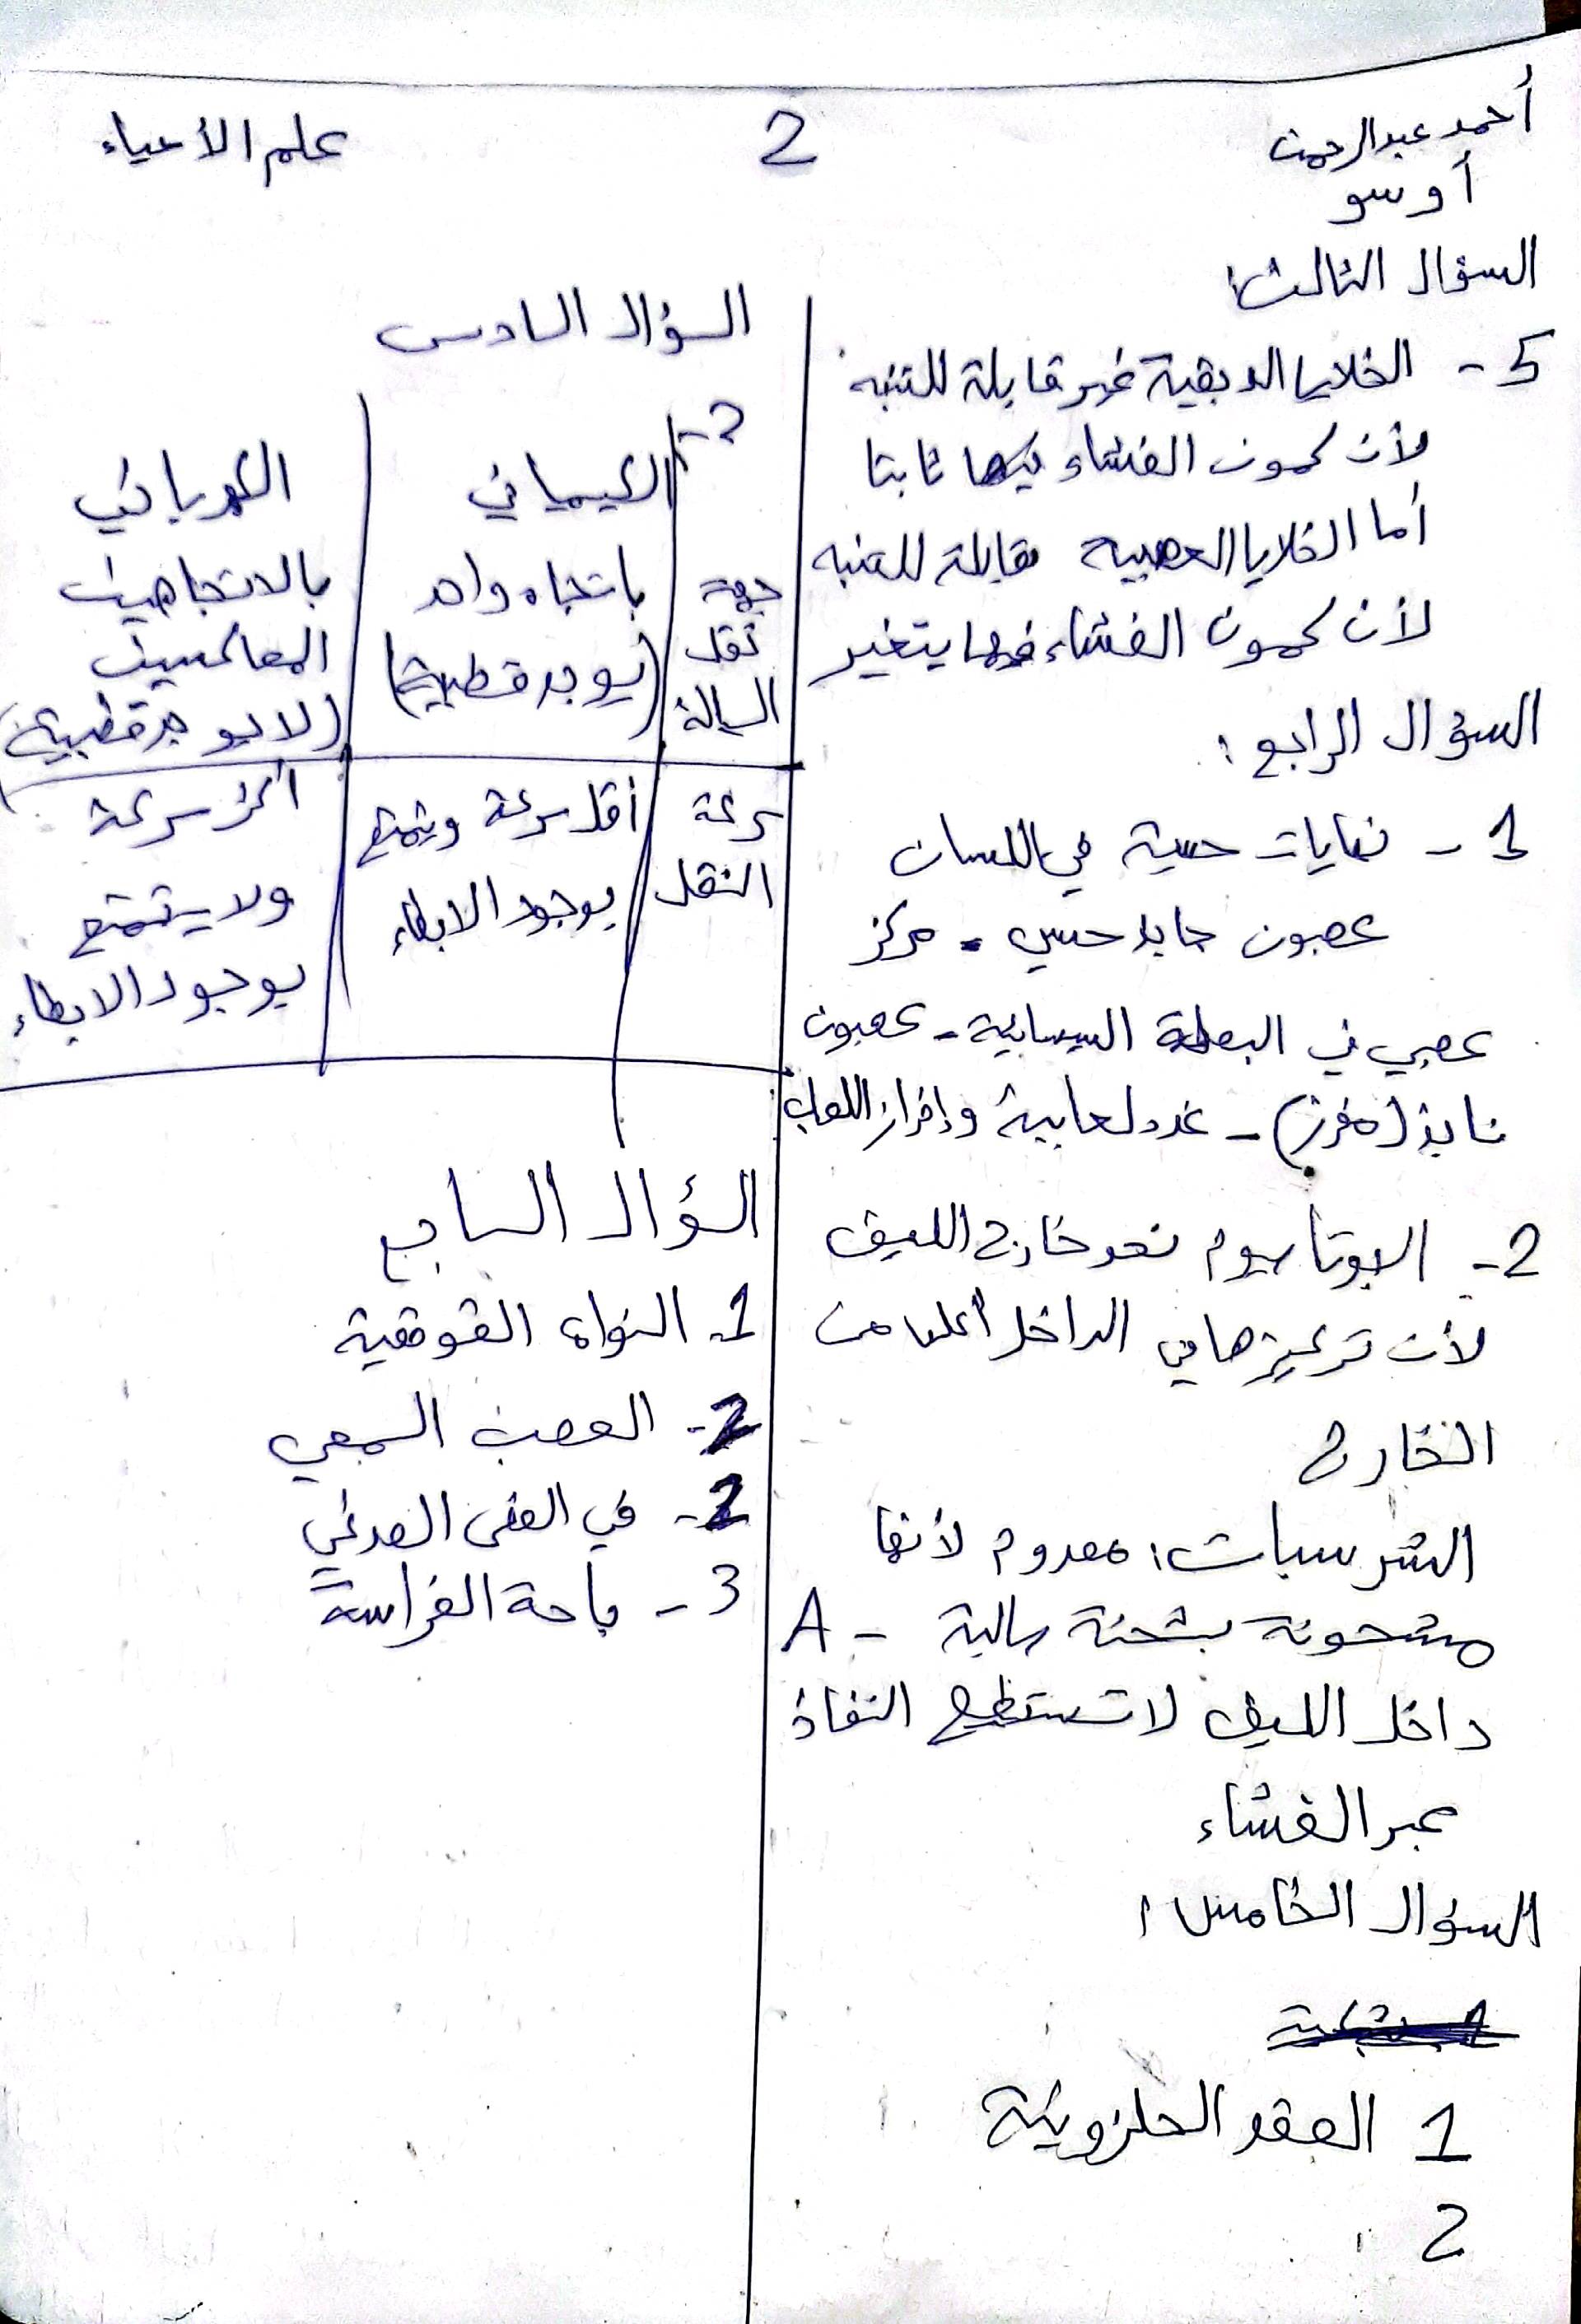 أحمد عبدالرحمن
أوسو
2
علم الأحياء
السؤال الثالث:
5 - الخلايا الدبقية غير قابلة للتنبه
لأن كمون الغشاء فيها ثابتا
أما الخلايا العصبية قابلة للتنبه
لأن كمون الغشاء فيها يتغير
السؤال الرابع:
1 - نهايات حسية في اللسان
عصبون جابذ حسي - مركز
عصبي في البصلة السيسائية - عصبون
نابذ (مفرز) - غدد لعابية وإفراز اللعاب
2 - البوتاسيوم نحو خارج الليف
لأن تركيزها في الداخل أعلى من
الخارج
الشرسبات: معدوم لأنها
مشحونة بشحنة سالبة - A
داخل الليف لا تستطيع النفاذ
عبر الغشاء
السؤال الخامس:
1 العقد الحلزونية
2
السؤال السادس
2-
الكيميائي
الكهربائي
جهة نقل السيالة
باتجاه واحد
(يوجد قطبية)
بالاتجاهين
المعاكسين
(لا يوجد قطبية)
سرعة النقل
أقل سرعة ويتمتع
بوجود الابطاء
أكثر سرعة
ولا يتمتع
بوجود الابطاء
السؤال السابع
1- النواة القوقعية
2- العصب السمعي
2- في الفص الصدغي
3 - باحة الفراسة